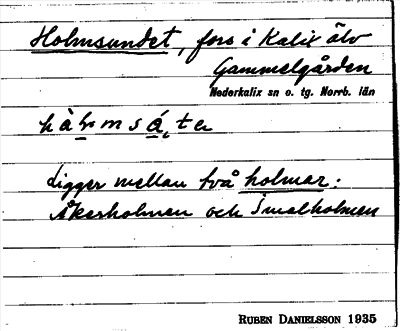 Holmsundet, fors i Kalix älv
Gammelgården
Nederkalix sn o. tg. Norrb. län
Ligger mellan två holmar:
Åkerholmen och Smalholmen
RUBEN DANIELSSON 1935